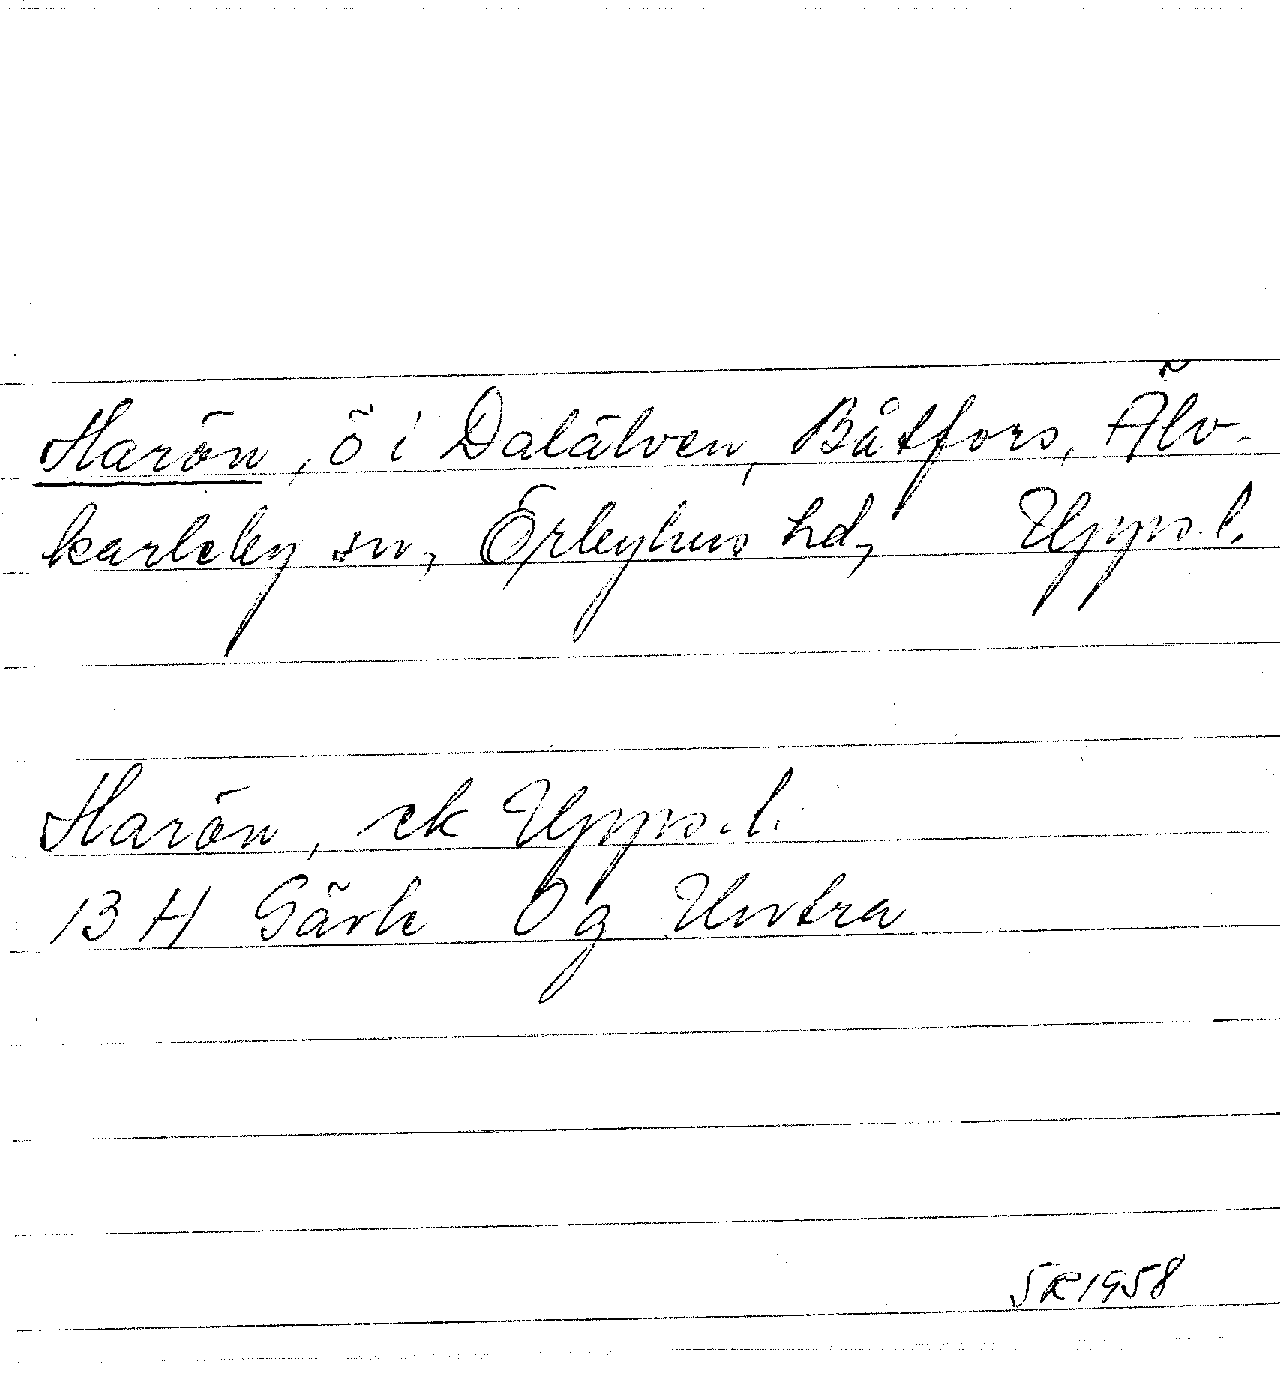 Harön, ö i Dalälven, Båtfors, Älv-
karleby sn, Örbyhus hd, Upps.l.
Harön, ek Upps.l.
13 H Gävle 0 g Untra
SR 1958